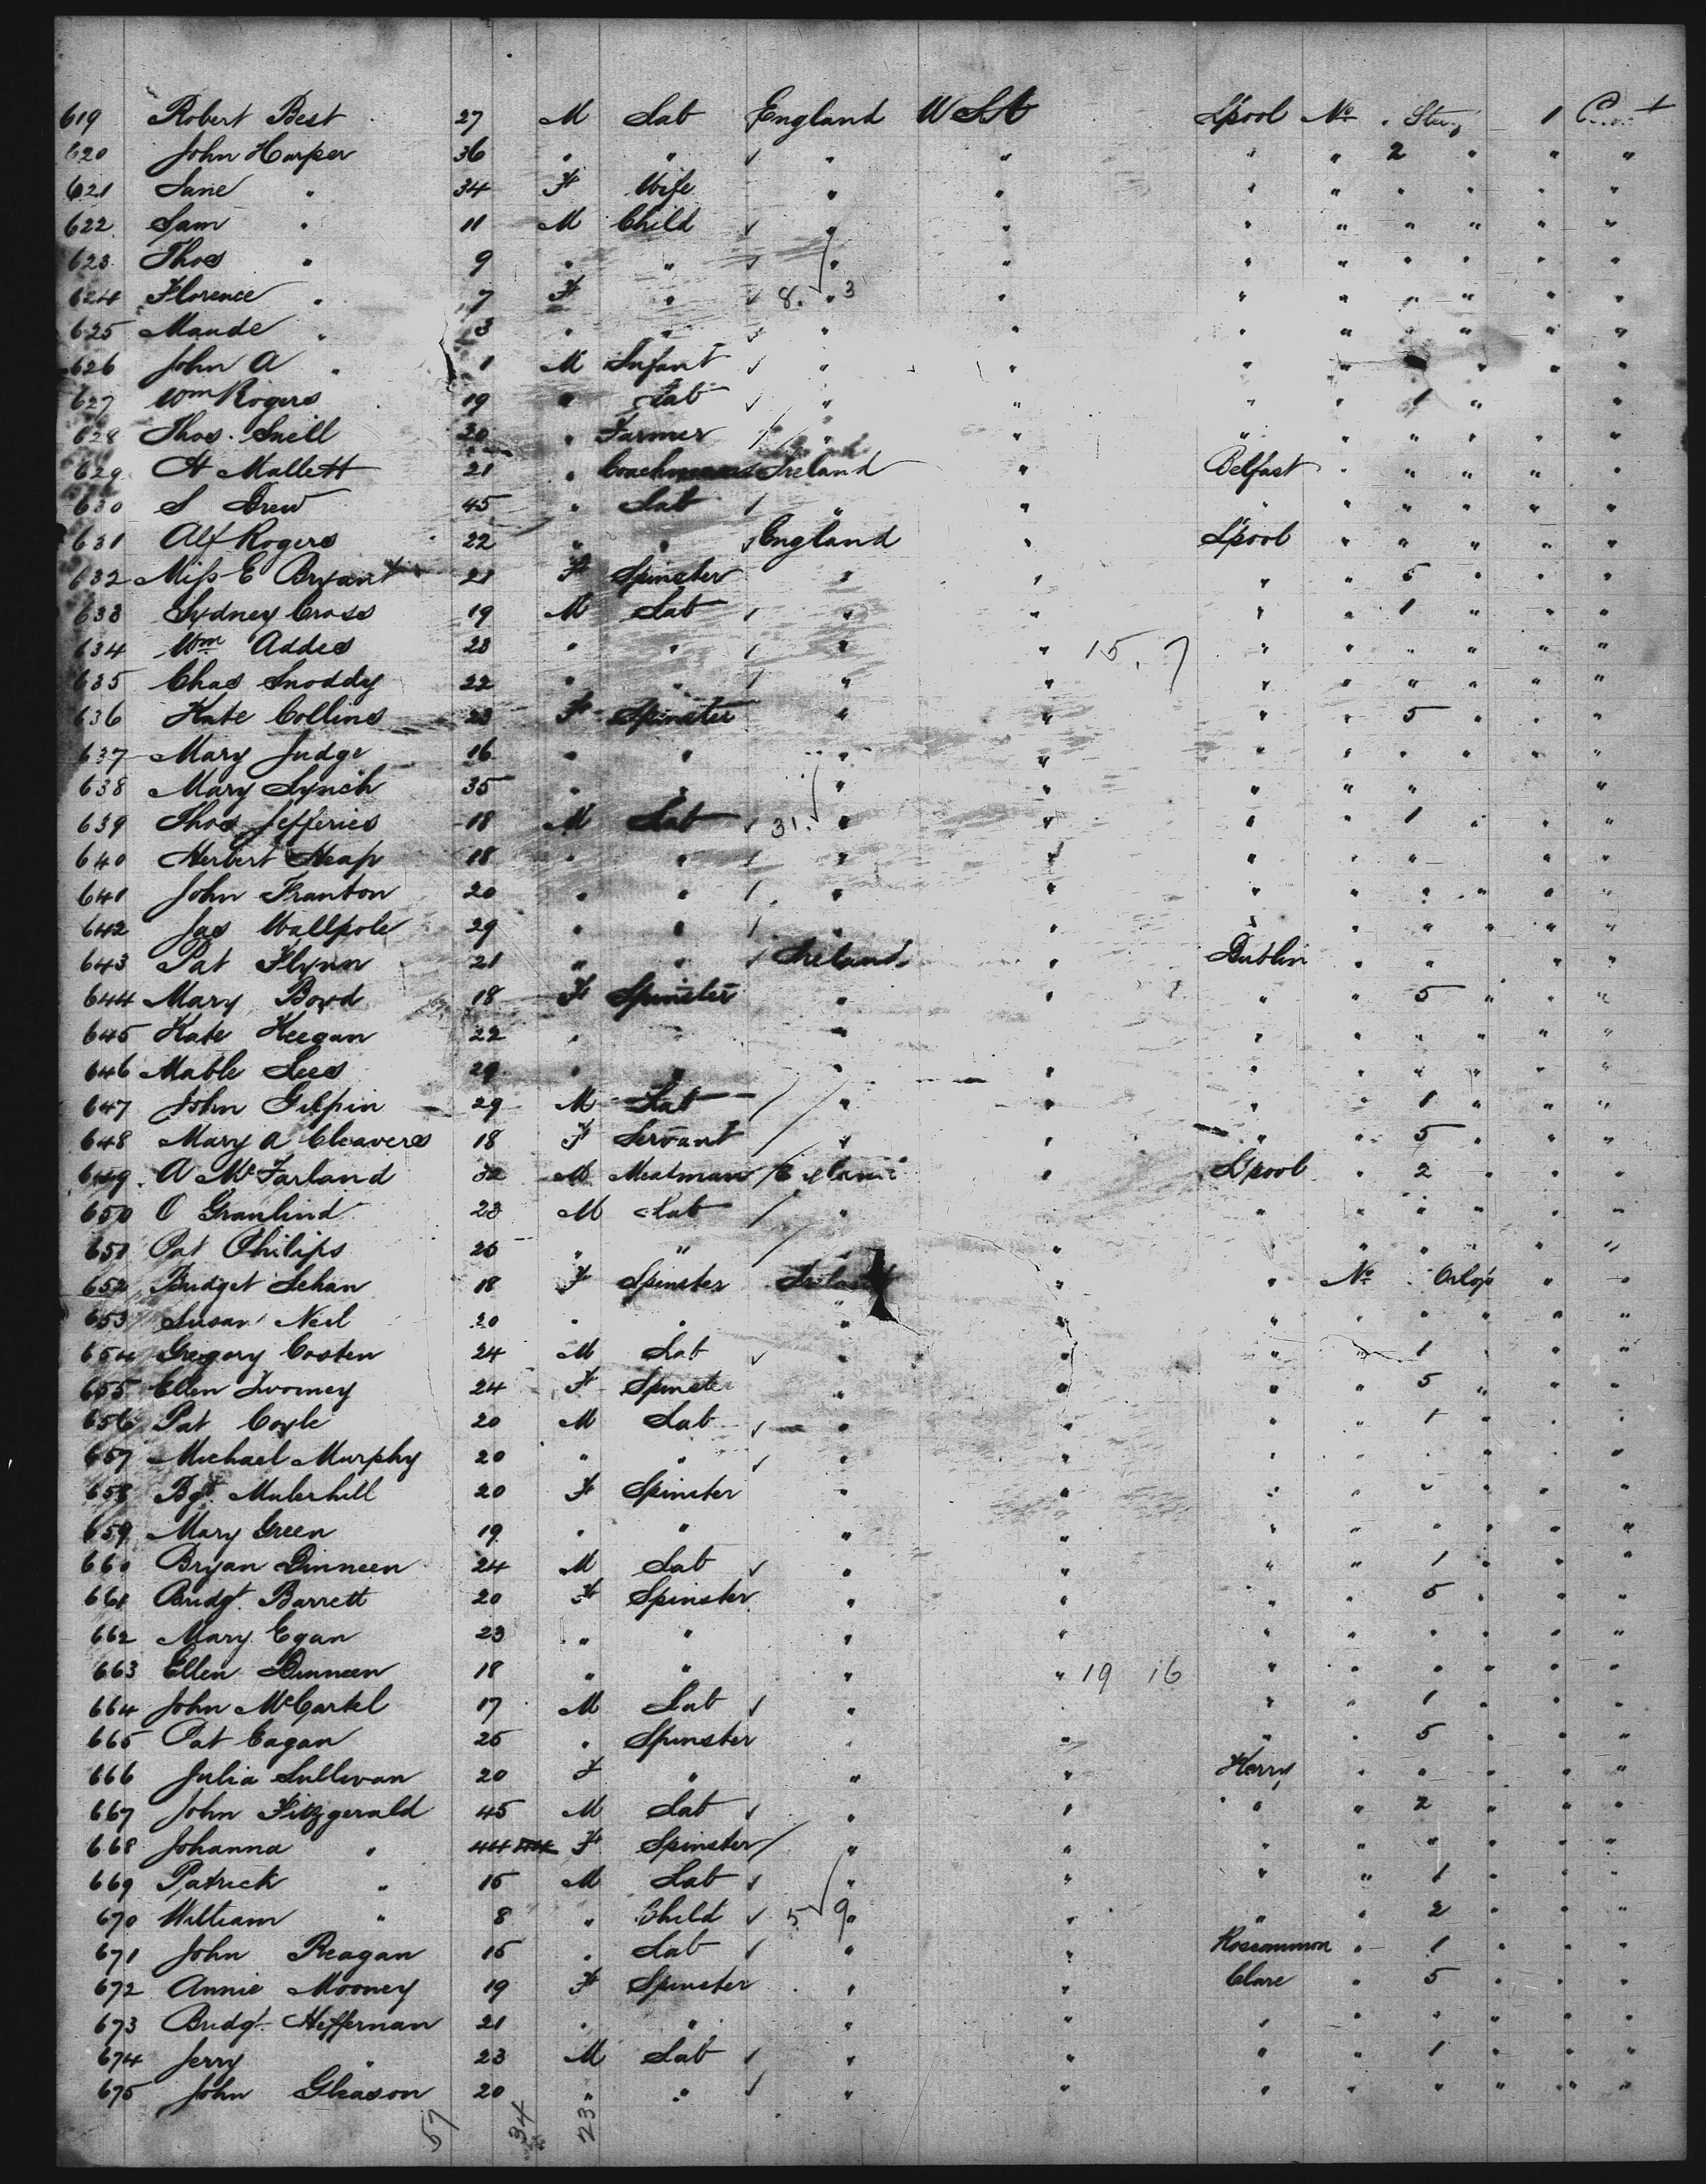 619 Robert Best 27 M Lab England USA L'pool No 1
620 John Harper 36 " " " " " " 2 " " "
621 Jane " 34 F Wife " " " " " " " "
622 Sam " 11 M Child " " " " " " " "
623 Thos " 9 " " " " " " " " " "
624 Florence " 7 F " 8. " 3 " " " " " " "
625 Maude " 3 " " " " " " " " " "
626 John A " 1 M Infant " " " " " " "
627 Wm Rogers 19 " Lab " " " " 1 " "
628 Thos. Snell 20 " Farmer " " " " " " " "
629 H Mallett 21 " Ireland " Belfast " " " " "
630 S Drew 45 " Lab " " " " " " " "
631 Alf Rogers 22 " " England " L'pool " " " " "
632 Miss E Bryant 21 F Spinster " " " " 5 " " "
633 Sydney Cross 19 M Lab " " " " 1 " " "
634 Wm Addes 23 " " " " 15. 7 " " " " " "
635 Chas Snoddy 22 " " " " " " " " " "
636 Kate Collins 23 F Spinster " " " " 5 " " "
637 Mary Judge 16 " " " " " " " " " "
638 Mary Lynch 35 " " " " " " " "
639 Thos Jefferies 18 M Lab 31. " " " " 1 " " "
640 Herbert Heap 18 " " " " " " " " "
641 John Franton 20 " " " " " " " " " "
642 Jas Wallpole 29 " " " " " " " " " "
643 Pat Flynn 21 " " Ireland " Dublin " " " "
644 Mary Boyd 18 F Spinster " " " " 5 " " "
645 Kate Keegan 22 " " " " " " " "
646 Mable Lees 29 " " " " " " " " " "
647 John Gilpin 29 M Lab " " " " 1 " " "
648 Mary A Cleavers 18 F Servant " " " " 5 " " "
649 A McFarland 32 M " L'pool " 2 " " "
650 O Granlind 23 M Lab " " " " " " "
651 Pat Philips 25 " " " " " " " " "
652 Bridget Lehan 18 F Spinster Ireland " " No Orlop " "
653 Susan Neil 20 " " " " " " " " " "
654 Gregory Costen 24 M Lab " " " " 1 " " "
655 Ellen Twomey 24 F Spinster " " " " 5 " " "
656 Pat Coyle 20 M Lab " " " " 1 " " "
657 Michael Murphy 20 " " " " " " " " " "
658 Bgt. Mulerhill 20 F Spinster " " " " " " " "
659 Mary Green 19 " " " " " " " " " "
660 Bryan Dinneen 24 M Lab " " " " 1 " " "
661 Bridgt. Barrett 20 F Spinster " " " " 5 " " "
662 Mary Egan 23 " " " " " " " " " "
663 Ellen Dinneen 18 " " " " 19 16 " " " " " "
664 John McCartel 17 M Lab " " " 1 " " "
665 Pat Eagan 25 " Spinster " " " " 5 " " "
666 Julia Sullivan 20 F " " " Kerry " " " " "
667 John Fitzgerald 45 M Lab " " " " 2 " " "
668 Johanna " 44 F Spinster " " " " " " " "
669 Patrick " 15 M Lab " " " " 1 " " "
670 William " 8 " Child 5. 9 " " " " 2 " " "
671 John Reagan 15 " Lab " " Roscommon " 1 " " "
672 Annie Mooney 19 F Spinster " " Clare " 5 " " "
673 Bridgt. Heffernan 21 " " " " " " " " " "
674 Jerry " 23 M Lab " " " " 1 " " "
675 John Gleason 20 " " " " " " " " " "
57 34 23